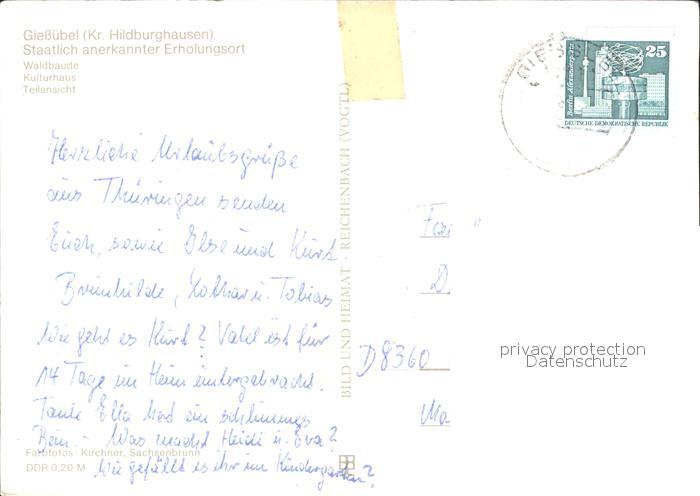 Gießübel (Kr. Hildburghausen)
Staatlich anerkannter Erholungsort
Waldbaude
Kulturhaus
Teilansicht
25
Berlin-Alexanderplatz
DEUTSCHE DEMOKRATISCHE REPUBLIK
Herzliche Urlaubsgrüße
aus Thüringen senden
Euch, sowie Else und Kurt
Brunhilde, Lothar u. Tobias
Wie geht es Kurt? Vatel ist für
14 Tage im Heim untergebracht.
Tante Ella hat ein schlimmes
Bein.- Was macht Heidi u. Eva?
Wie gefällt es ihr im Kindergarten?
BILD UND HEIMAT · REICHENBACH (VOGTL)
Fa
D
D 8360
Ma
privacy protection
Datenschutz
Farbfotos: Kirchner, Sachsenbrunn
DDR 0,20 M